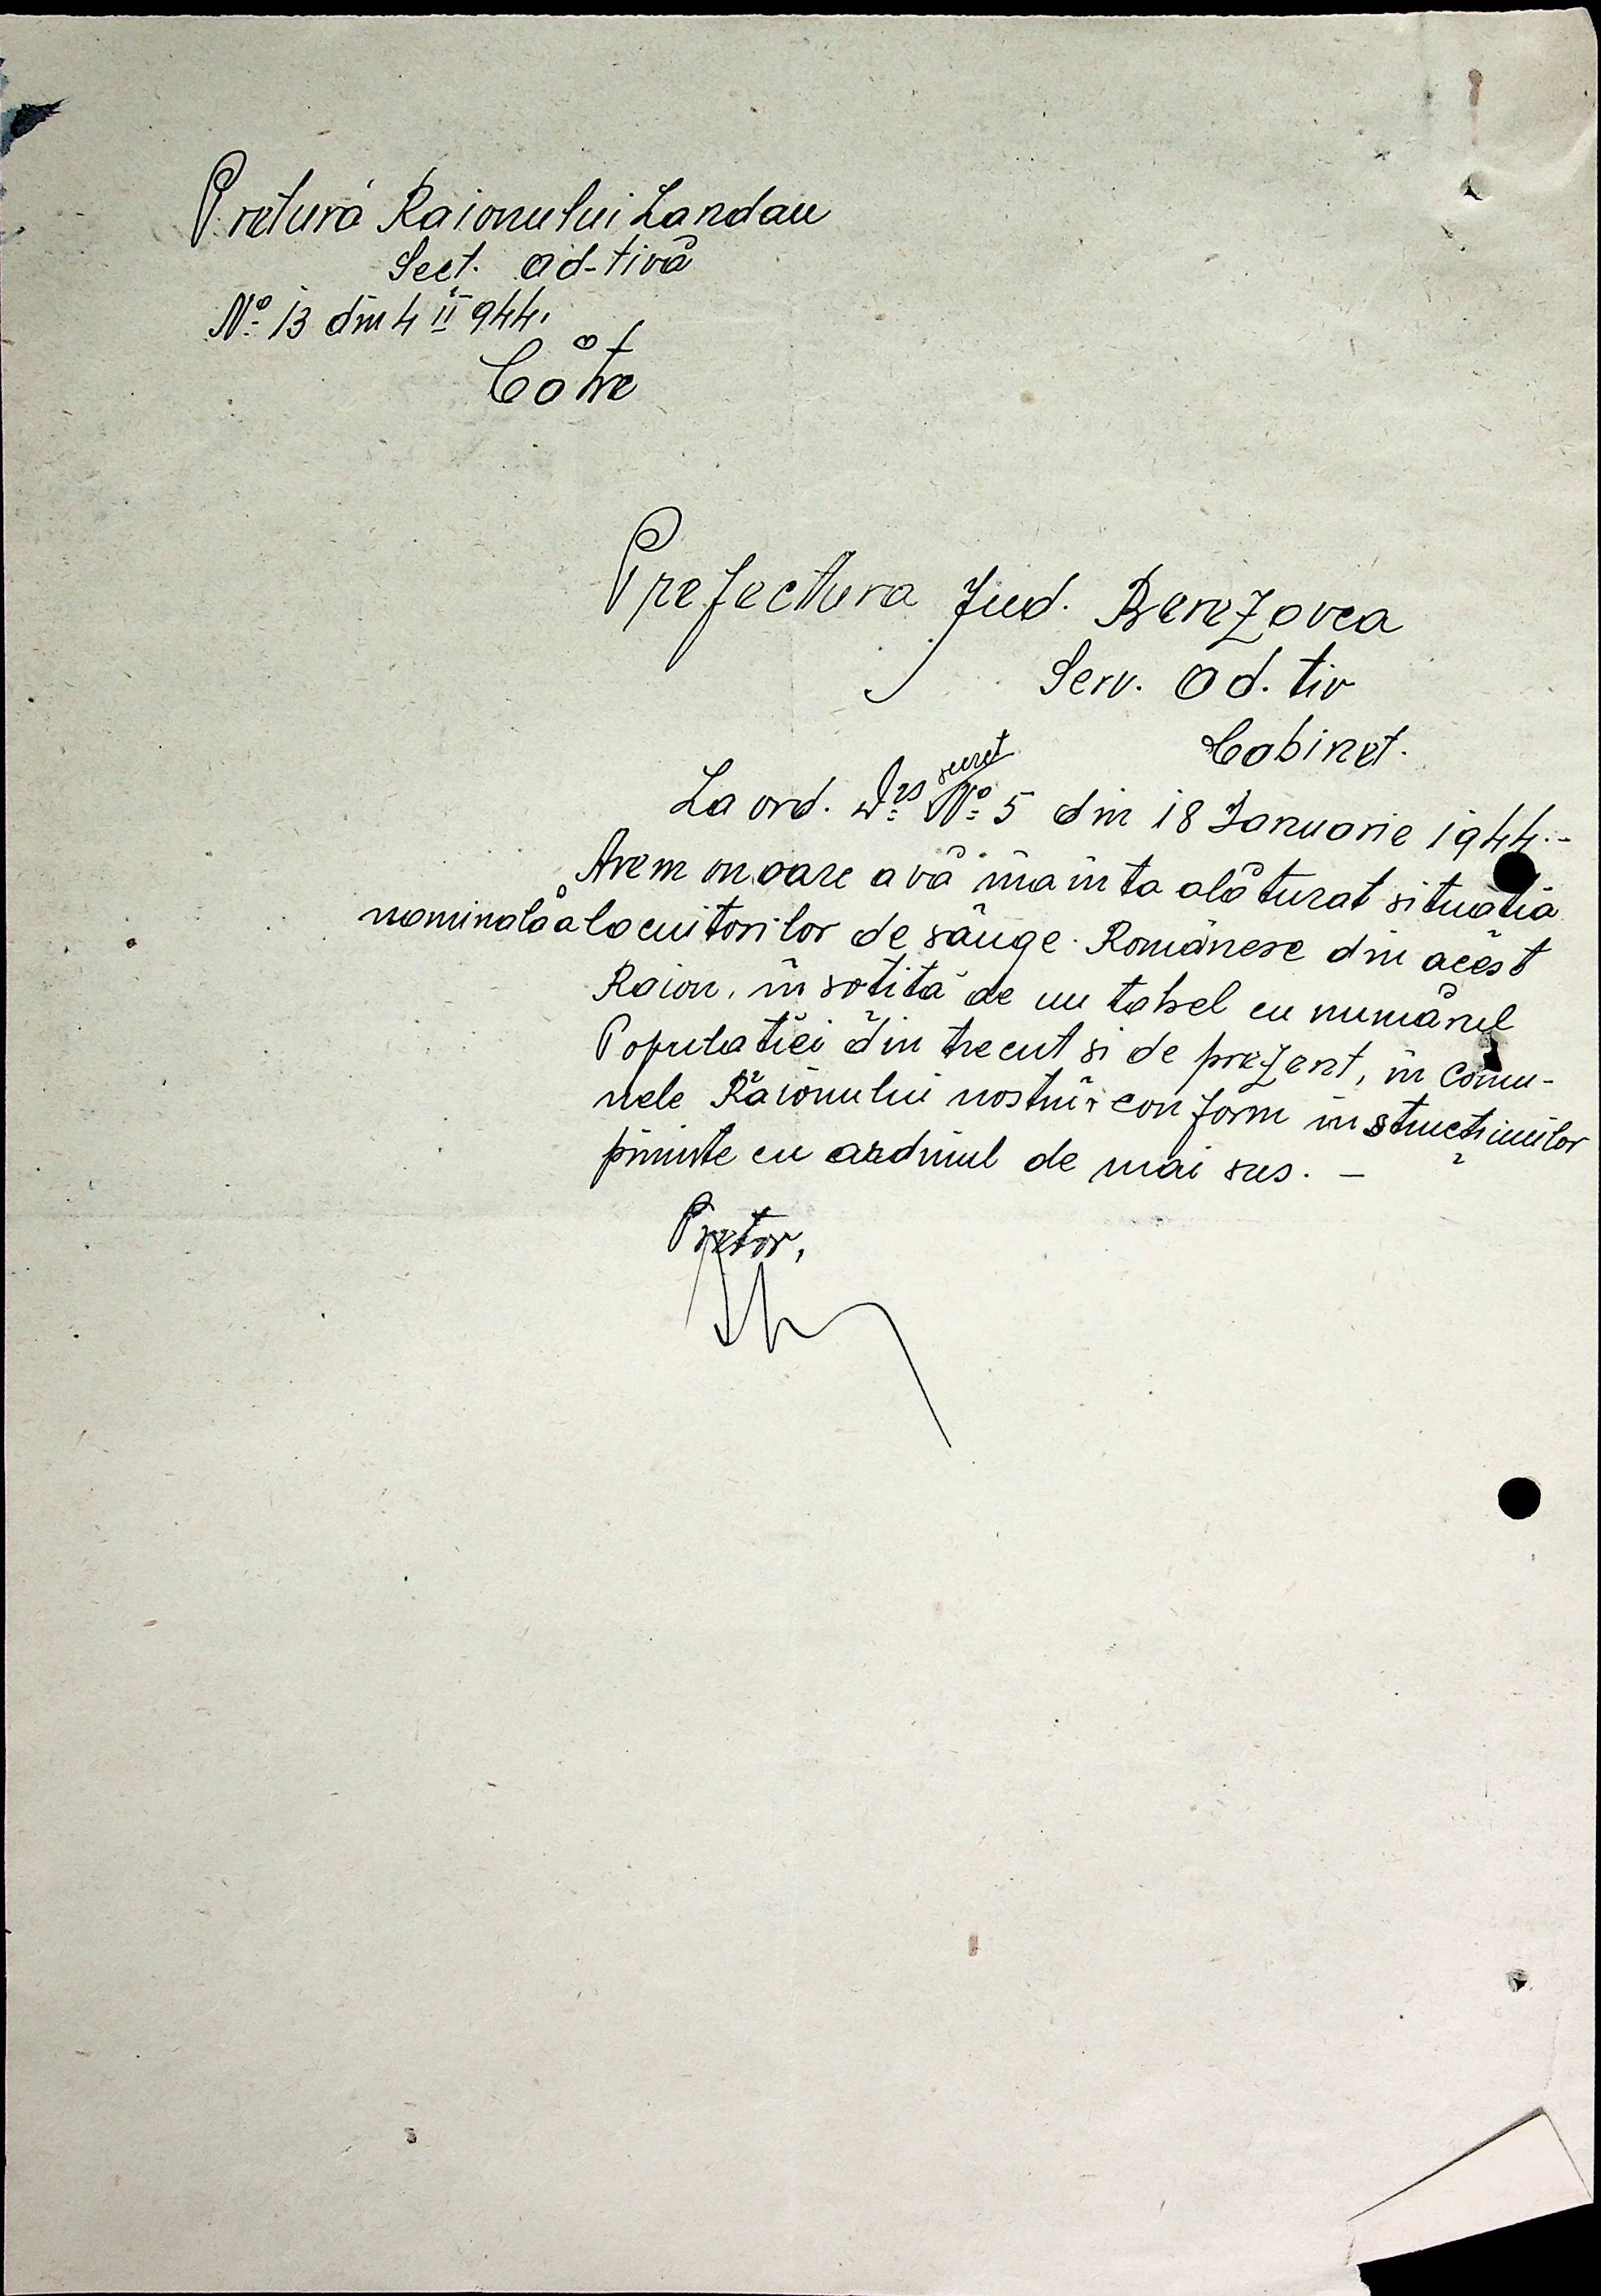 Pretura Raionului Landau
Sect. ad-tivă
Nº 13 din 4 II 944.
Către
Prefectura Jud. Berezovca
Serv. Ad. tiv
Cabinet.
secret
La ord. Dvs Nº 5 din 18 Ianuarie 1944.-
Avem onoare a vă înainta alăturat situatia
nominală a locuitorilor de sânge Românesc din acest
Raion, însotită de un tabel cu numărul
Populatiei din trecut si de prezent, in comu-
nele Raionului nostru conform instructiunilor
primite cu ordinul de mai sus. -
Pretor,